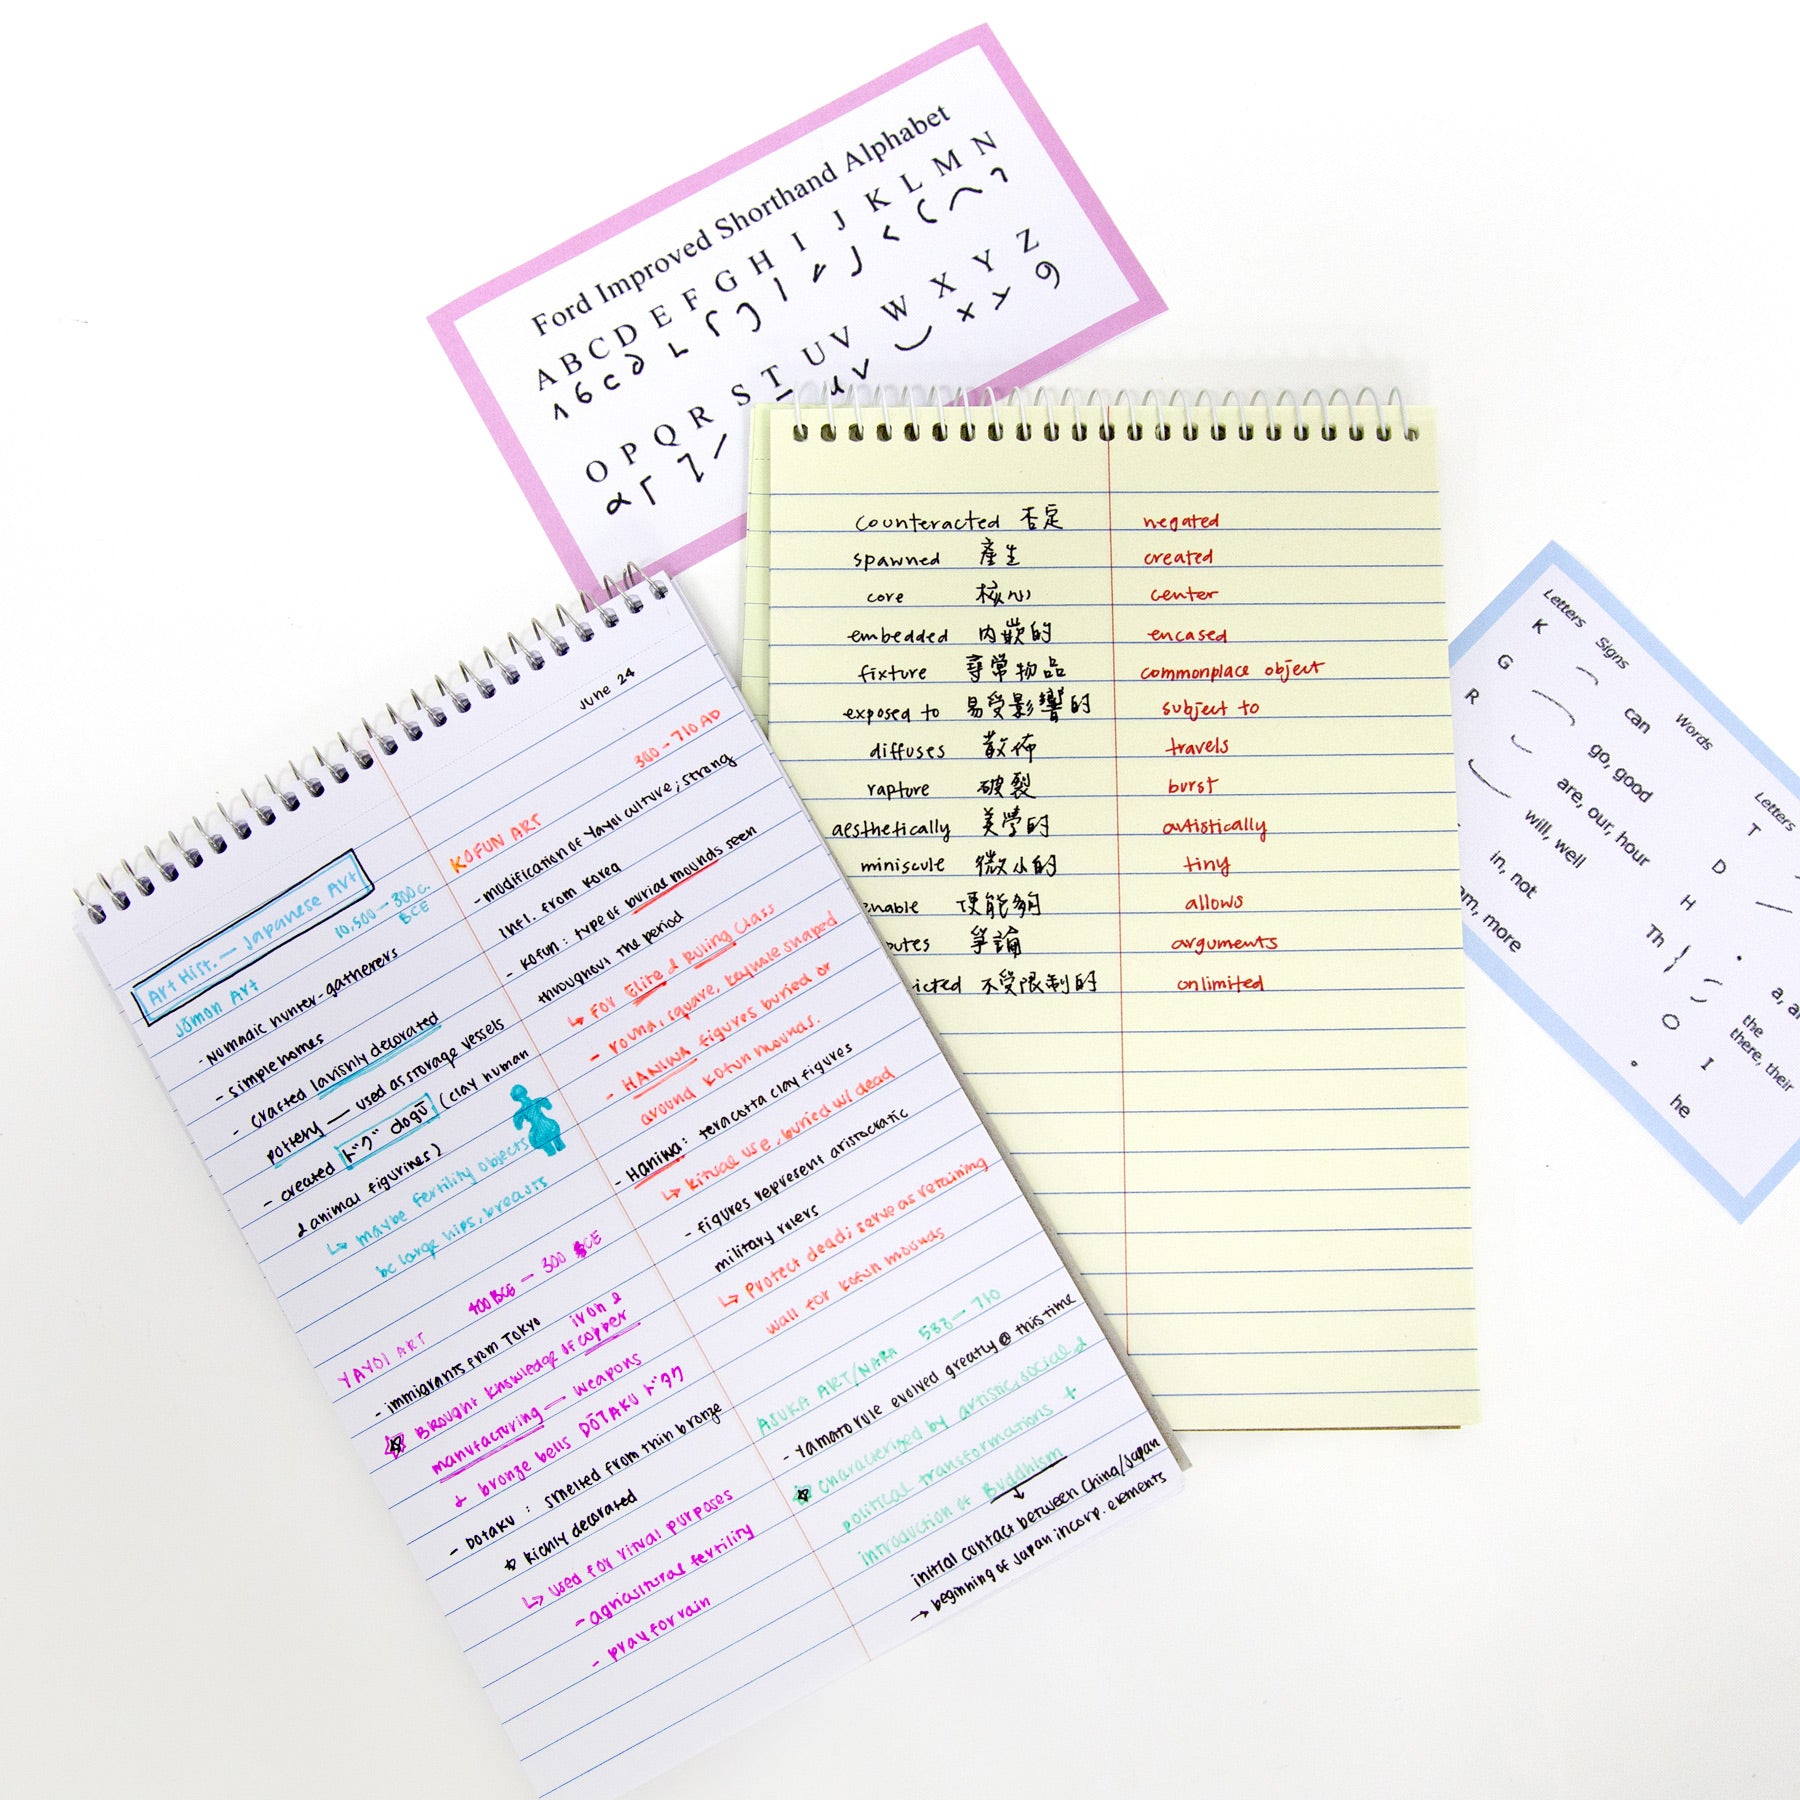 Ford Improved Shorthand Alphabet
A B C D E F G H I J K L M N
O P Q R S T U V W X Y Z
counteracted 否定 negated
spawned 產生 created
core 核心 center
embedded 內嵌的 encased
fixture 尋常物品 commonplace object
exposed to 易受影響的 subject to
diffuses 散佈 travels
rapture 破裂 burst
aesthetically 美學的 artistically
miniscule 微小的 tiny
enable 使能夠 allows
爭論 arguments
不受限制的 unlimited
June 24
Art Hist. — Japanese Art
Jōmon Art
10,500 — 300 c.
BCE
- Nomadic hunter-gatherers
- simple homes
- crafted lavishly decorated
pottery — used as storage vessels
- created ドグ dogū (clay human
& animal figurines)
↳ maybe fertility objects
bc large hips, breasts
YAYOI ART 400 BCE — 300 BCE
- immigrants from TOKYO
iron &
Brought knowledge of copper
manufacturing — weapons
& bronze bells DŌTAKU ドタク
- DOTAKU : smelted from thin bronze
richly decorated
↳ used for ritual purposes
- agricultural fertility
- pray for rain
KOFUN ART 300 - 710 AD
- modification of Yayoi culture; strong
infl. from Korea
- Kofun : type of burial mounds seen
throughout the period
↳ For Elite & Ruling class
- round, square, keyhole shaped
- HANIWA figures buried or
around Kofun mounds.
- Haniwa: teracotta clay figures
↳ Ritual use, buried w/ dead
- figures represent aristocratic
military rulers
↳ Protect dead; serve as retaining
wall for Kofun mounds
ASUKA ART/NARA 538 — 710
- Yamato rule evolved greatly @ this time
characterized by artistic, social, &
political transformations +
introduction of Buddhism
↓
initial contact between China/Japan
→ beginning of Japan incorp. elements
Letters Signs Words Letters
K can
G go, good
R are, our, hour
will, well
in, not
more
T
D
H a,
Th the
there, their
O
I
he